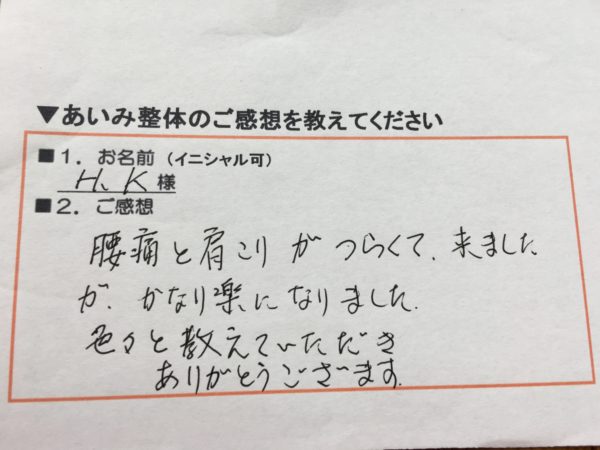 ▼あいみ整体のご感想を教えてください
■1．お名前（イニシャル可）
H、K様
■2．ご感想
腰痛と肩こりがつらくて、来ました
が、かなり楽になりました。
色々と教えていただき
ありがとうございます。